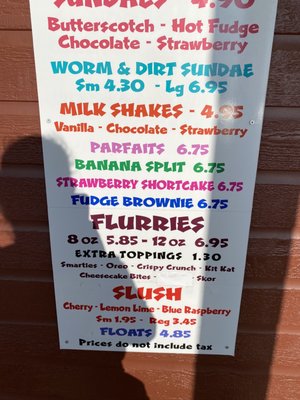 SUNDAES - 4.90
Butterscotch - Hot Fudge
Chocolate - Strawberry
WORM & DIRT SUNDAE
Sm 4.30 - Lg 6.95
MILK SHAKES - 4.95
Vanilla - Chocolate - Strawberry
PARFAITS 6.75
BANANA SPLIT 6.75
STRAWBERRY SHORTCAKE 6.75
FUDGE BROWNIE 6.75
FLURRIES
8 oz 5.85 - 12 oz 6.95
EXTRA TOPPINGS 1.30
Smarties - Oreo - Crispy Crunch - Kit Kat
Cheesecake Bites - Skor
SLUSH
Cherry - Lemon Lime - Blue Raspberry
Sm 1.95 - Reg 3.45
FLOATS 4.85
Prices do not include tax